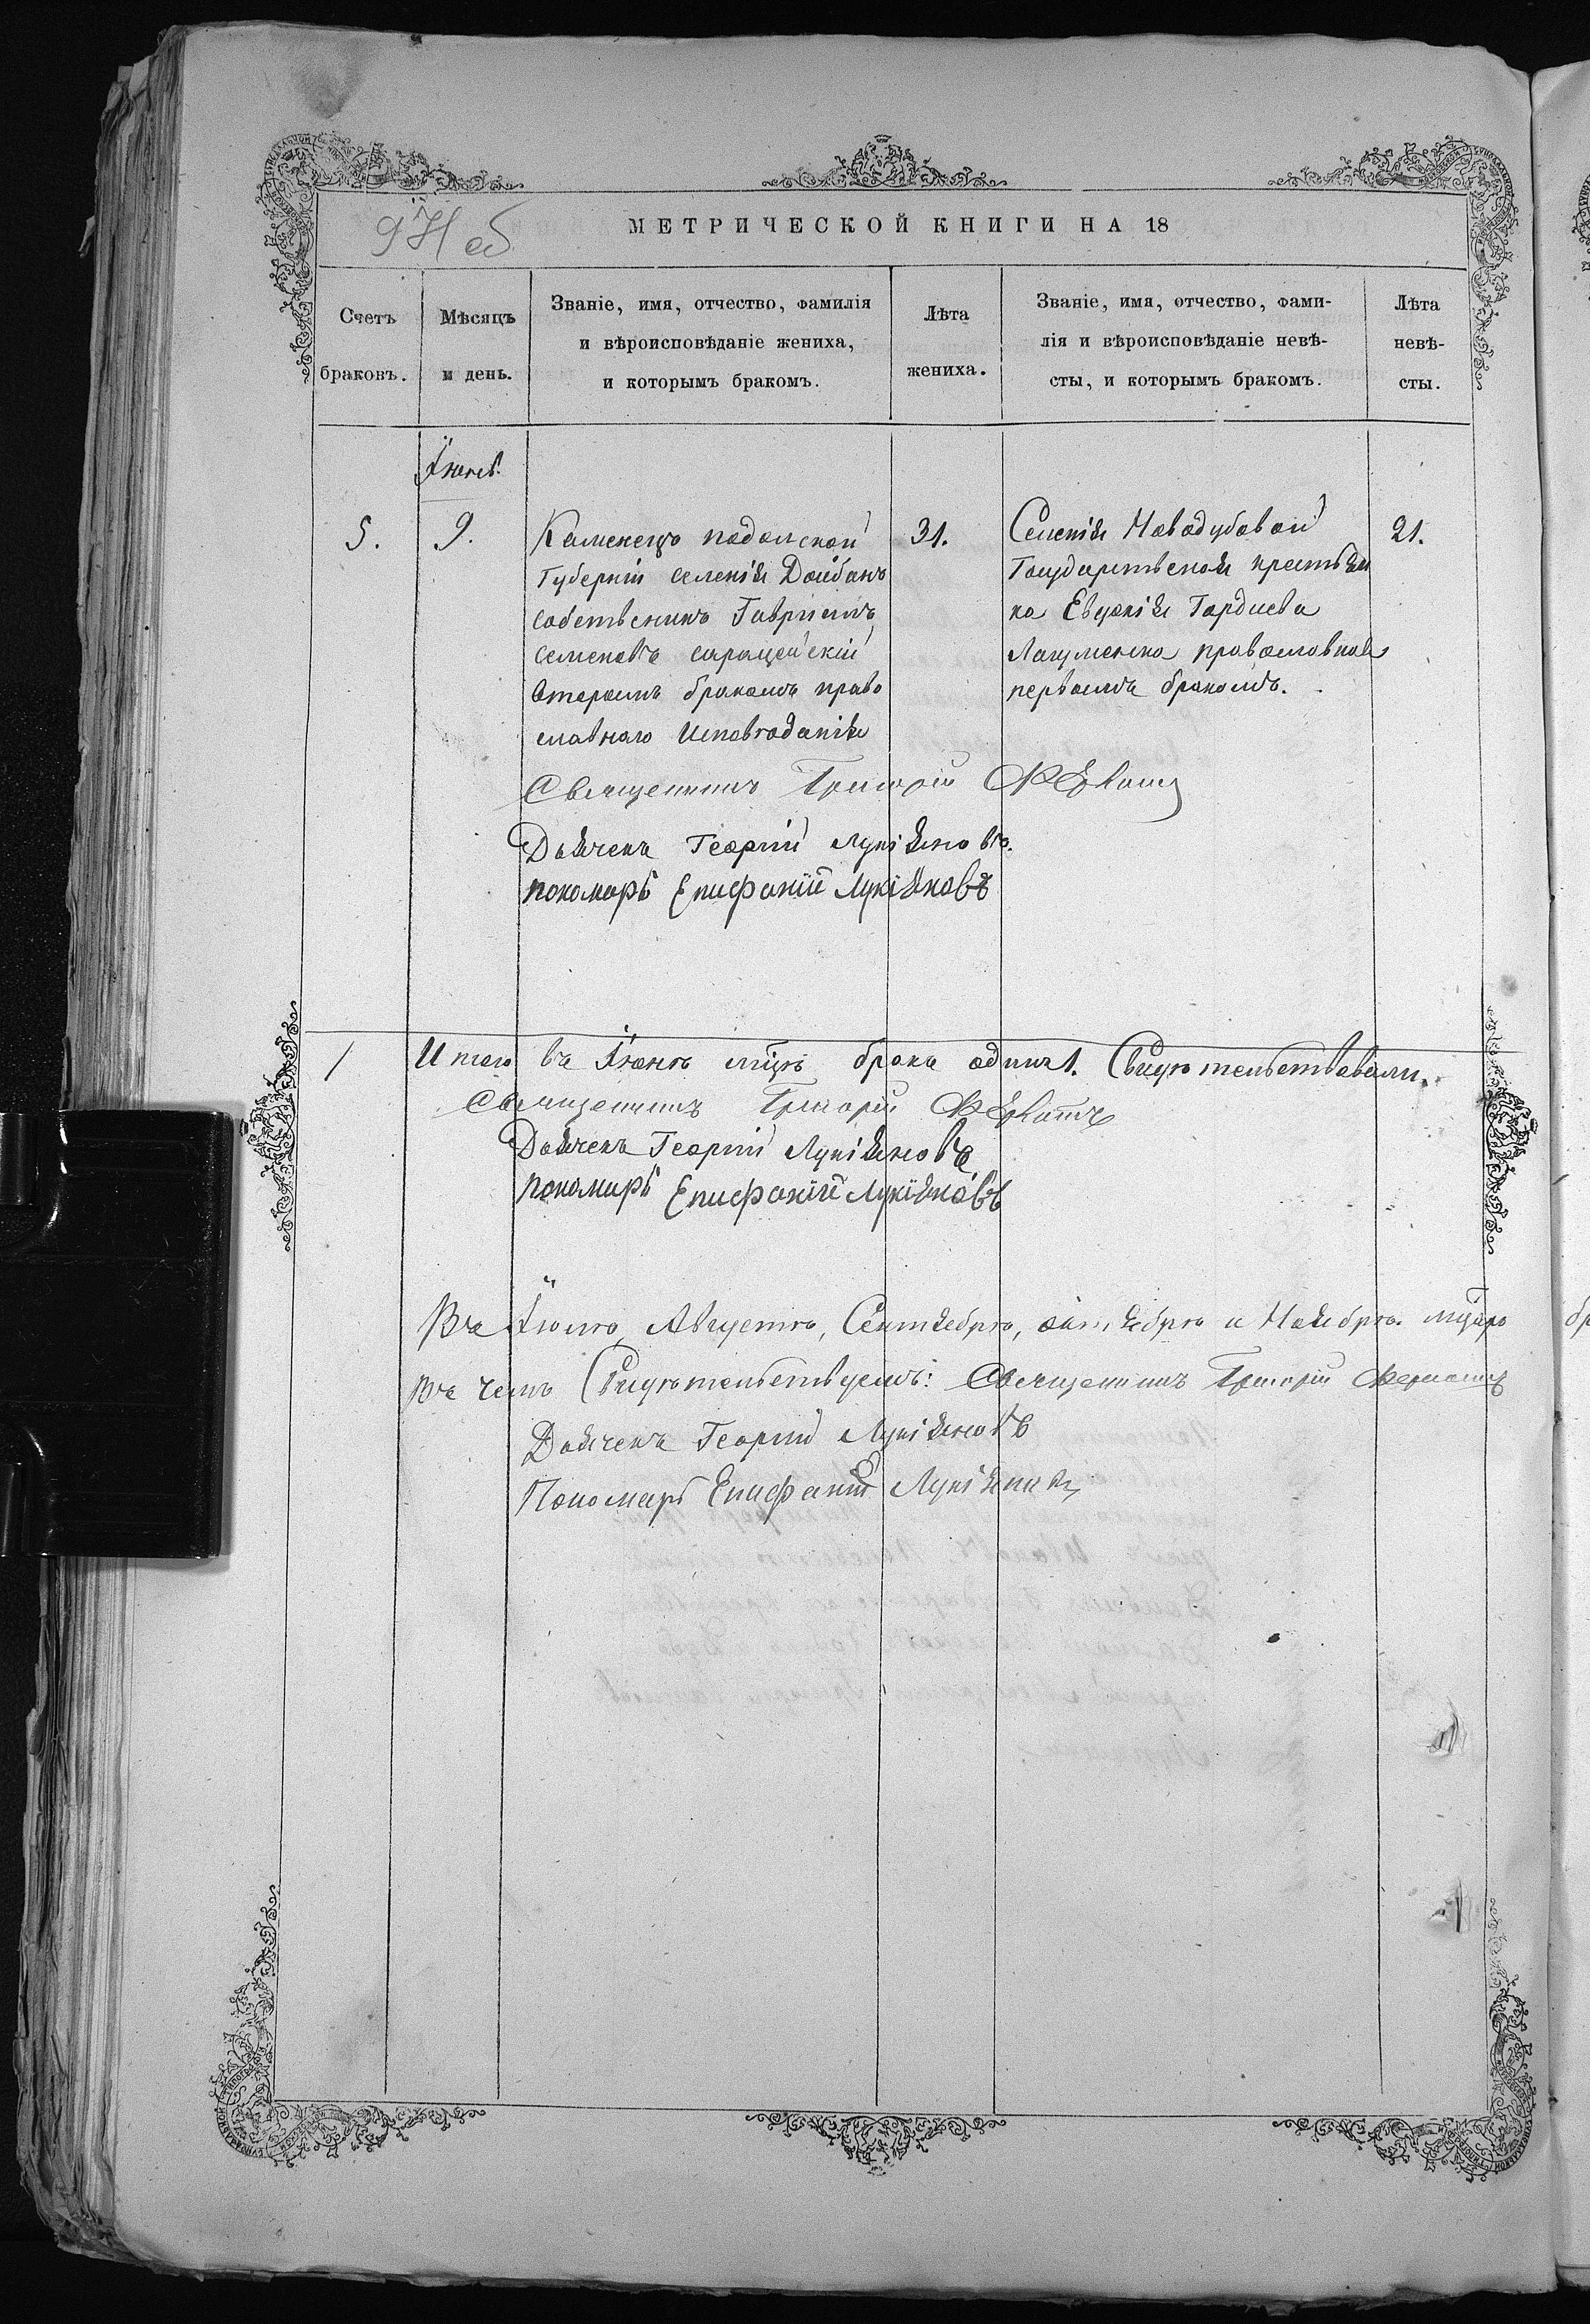 МЕТРИЧЕСКОЙ КНИГИ НА 18
Счетъ браковъ.
Мѣсяцъ и день.
Званіе, имя, отчество, фамилія
и вѣроисповѣданіе жениха,
и которымъ бракомъ.
Лѣта
жениха.
Званіе, имя, отчество, фами-
лія и вѣроисповѣданіе невѣ-
сты, и которымъ бракомъ.
Лѣта
невѣ-
сты.
5.
9.
Каменецъ подольской
Губерніи селенія Долбанъ
собственикъ Гавріилъ
Семеновъ
вторымъ бракомъ право
славнаго
31.
Селенія Новодубовой
Государственая крестьян
ка Евдокія Гордиева
православная
первымъ бракомъ.
21.
Священникъ Григорій
Дьячекъ Георгій Лукіяновъ.
пономарь Епифаній Лукіяновъ
1
Итого въ Іюнѣ мцѣ бракъ одинъ 1. Свидѣтельствовали.
Священникъ Григорій
Дьячекъ Георгій Лукіяновъ
пономарь Епифаній Лукіяновъ
Въ Іюлѣ, Августѣ, Сентябрѣ, октябрѣ и Ноябрѣ мцахъ
Въ чемъ Свидѣтельствуемъ: Священникъ Григорій
Дьячекъ Георгій Лукіяновъ
Пономарь Епифаній Лукіяновъ